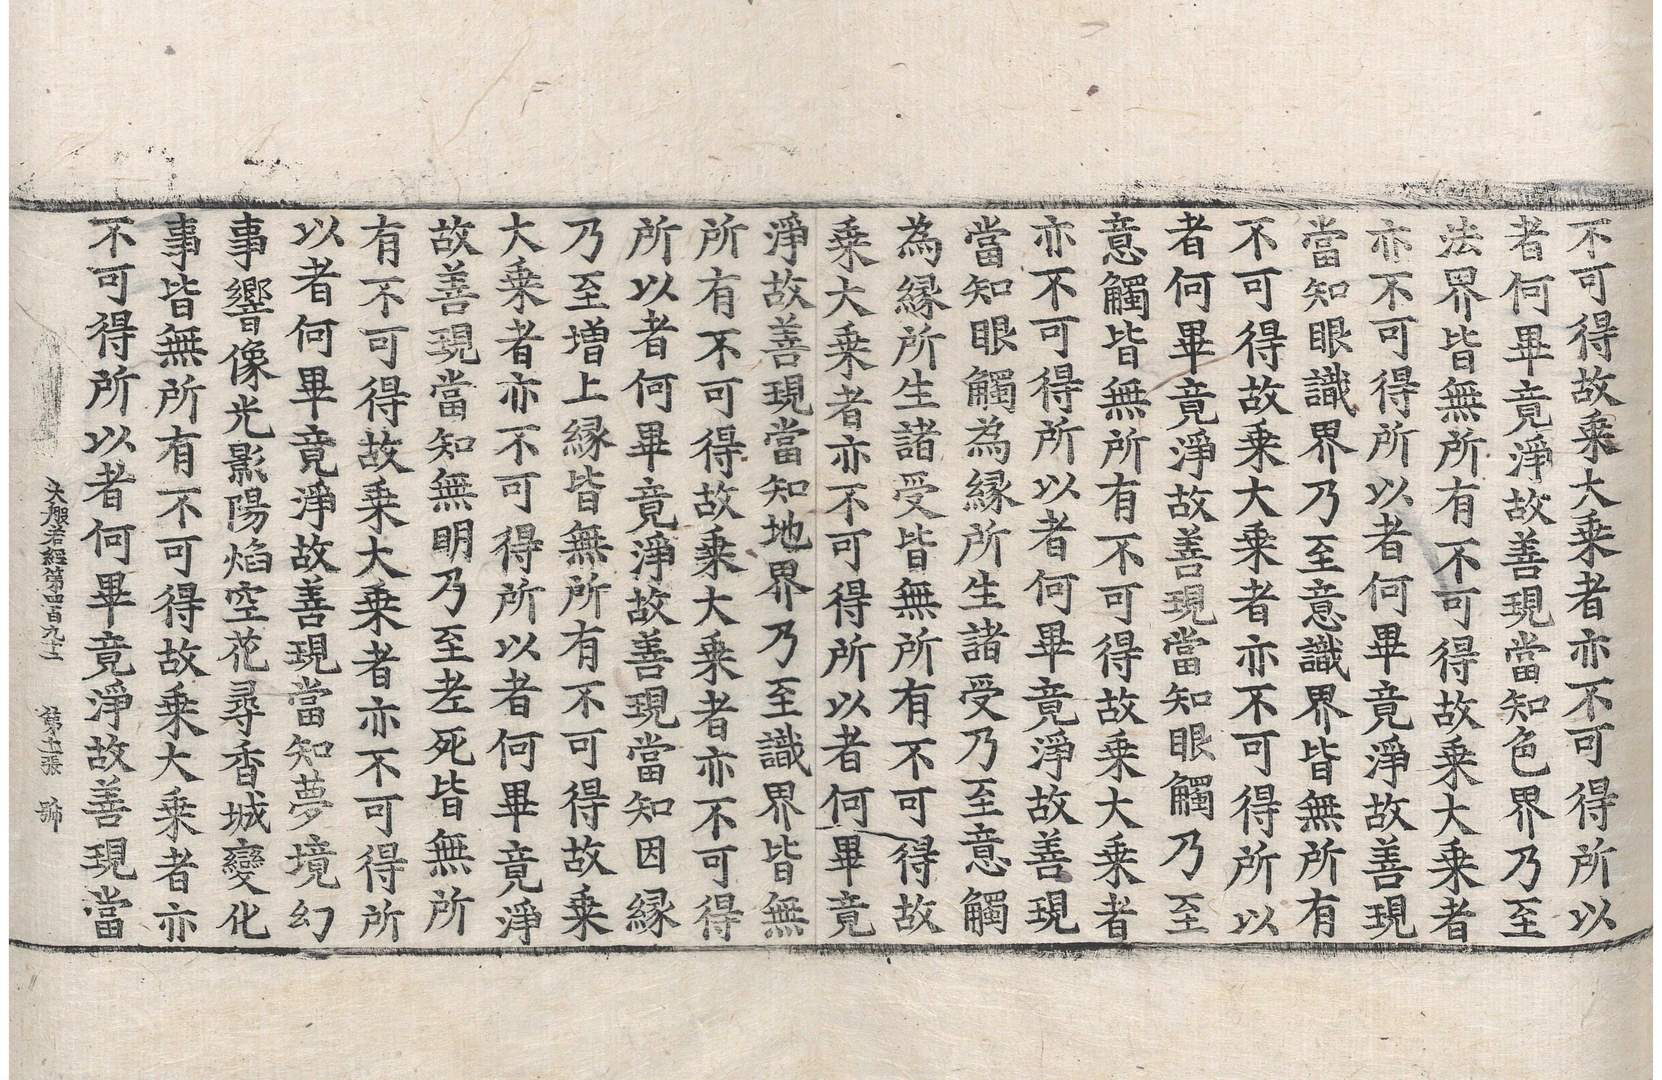 不可得故乗大乗者亦不可得所以
者何畢竟淨故善現當知色界乃至
法界皆無所有不可得故乗大乗者
亦不可得所以者何畢竟淨故善現
當知眼識界乃至意識界皆無所有
不可得故乗大乗者亦不可得所以
者何畢竟淨故善現當知眼觸乃至
意觸皆無所有不可得故乗大乗者
亦不可得所以者何畢竟淨故善現
當知眼觸為縁所生諸受乃至意觸
為縁所生諸受皆無所有不可得故
乗大乗者亦不可得所以者何畢竟
淨故善現當知地界乃至識界皆無
所有不可得故乗大乗者亦不可得
所以者何畢竟淨故善現當知因縁
乃至增上縁皆無所有不可得故乗
大乗者亦不可得所以者何畢竟淨
故善現當知無明乃至老死皆無所
有不可得故乗大乗者亦不可得所
以者何畢竟淨故善現當知夢境幻
事響像光影陽焰空花尋香城變化
事皆無所有不可得故乗大乗者亦
不可得所以者何畢竟淨故善現當
大般若經第四百九十二 第十張 號